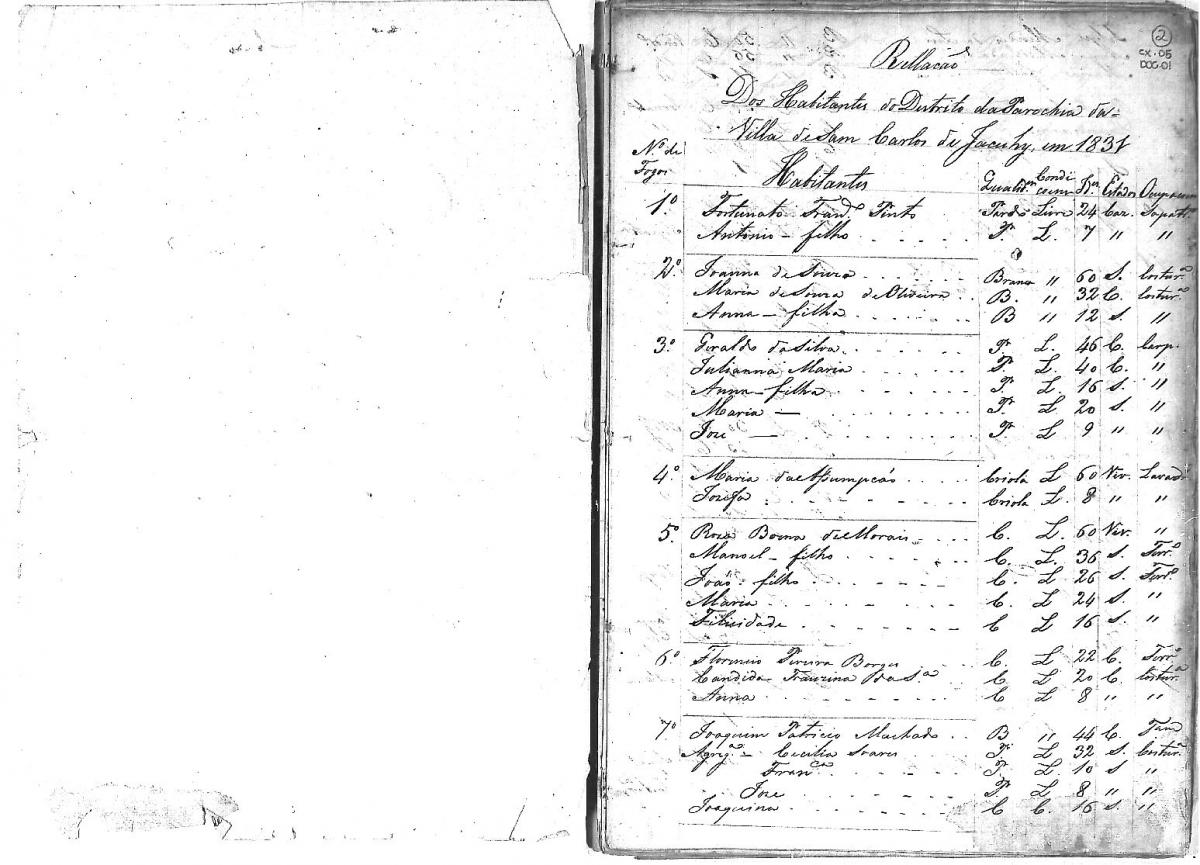 2
CX.05
DOC.01
Rellacaõ
Dos Habitantes do Destrito da Parochia da
Villa de Sam Carlos de Jacuhy, em 1831
Nº de Fogos Habitantes Qualid.es Condicoens Id.es Estados Ocupacoens
1º Fortunato Fran.co Pinto Pardo Livre 24 Caz. Sapatr.
Antonio - filho P. L. 7 " "
2º Joanna de Souza Branca " 60 S. Costur.a
Maria de Souza de Oliveira B. " 32 C. Costur.a
Anna - filha B " 12 S. "
3º Geraldo da Silva P. L. 46 C. Carp.
Julianna Maria P. L. 40 C. "
Anna - filha P. L. 16 S. "
Maria - P. L 20 S. "
Joze - P. L 9 " "
4º Maria da Assumpcaõ Criola L 60 Viv. Lavad.
Jozefa Criola L. 8 " "
5º Roza Boena de Morais C. L. 60 Viv. "
Manoel - filho C. L. 36 S. Ferr.o
João - filho C. L 26 S. Ferr.o
Maria C. L 24 S. "
Filicidade C L 16 S. "
6º Florencio Pereira Borges C. L 22 C. Ferr.o
Candida da S.a C L 20 C. Costur.a
Anna C L 8 " "
7º Joaquim Patricio Machado B " 44 C.
Agreg.a - Cecilia Soares P. L 32 S. Costur.a
Fran.ca P. L. 10 S "
Joze P. L 8 " "
Joaquina C C. 16 S. "